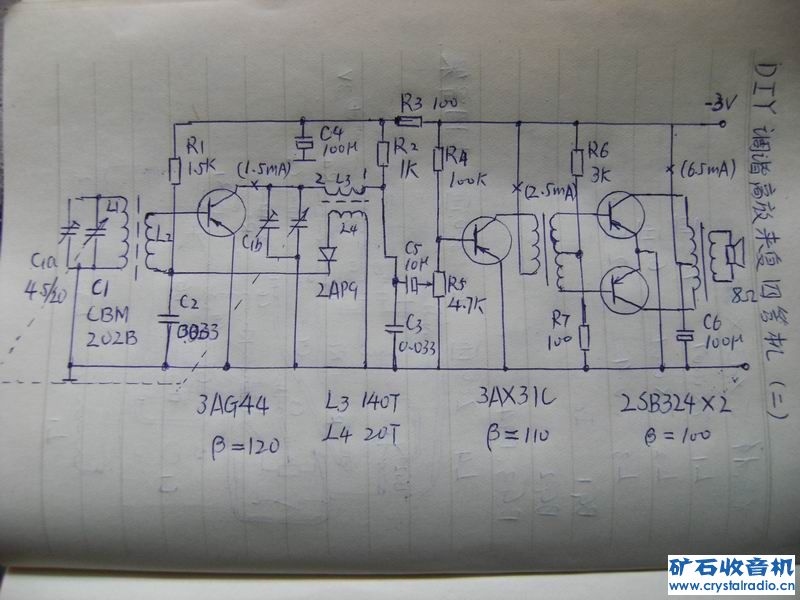 DIY 调谐高放来复四管机 (二)
R3 100
-3V
R1
15K
C4
100μ
R2
1K
R4
100K
R6
3K
(1.5mA)
2 L3 1
(2.5mA)
(6.5mA)
L1
L2
L4
C1b
C1a
4.5/20
C1
CBM
202B
2AP9
C5
10μ
R5
4.7K
8Ω
C2
0.033
C3
0.033
R7
100
C6
100μ
3AG44
L3 140T
3AX31C
2SB324×2
β=120
L4 20T
β=110
β=100
矿石收音机
www.crystalradio.cn